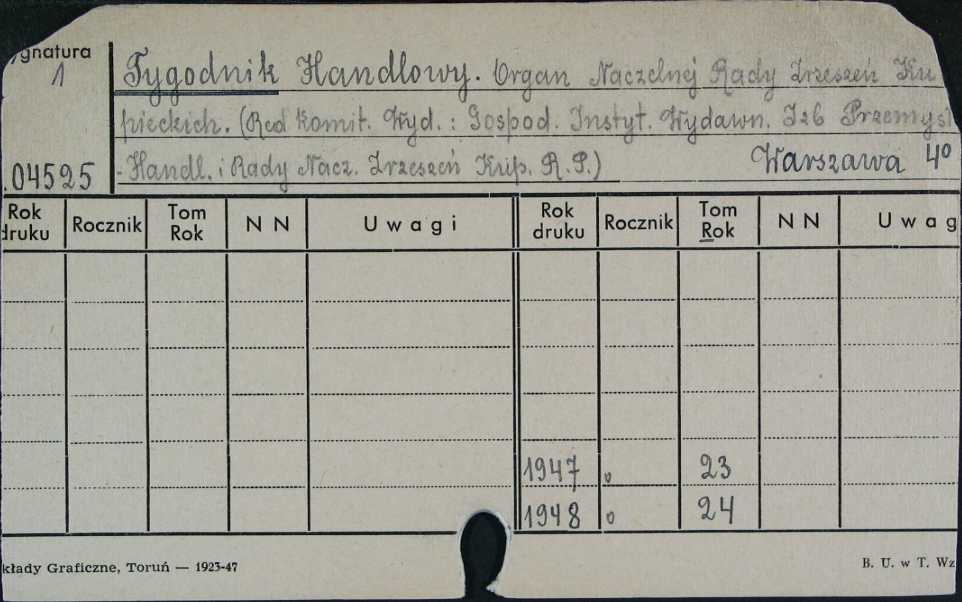 ygnatura
1
Tygodnik Handlowy. Organ Naczelnej Rady Zrzeszeń Ku-
pieckich. (Red. Komit. Wyd.: Gospod. Instyt. Wydawn. Izb Przemysł.
.04525 -Handl. i Rady Nacz. Zrzeszeń Kup. R.P.) Warszawa 4°
Rok druku Rocznik Tom Rok N N Uwagi Rok druku Rocznik Tom Rok N N Uwag
1947 " 23
1948 " 24
kłady Graficzne, Toruń — 1923-47 B. U. w T. Wz